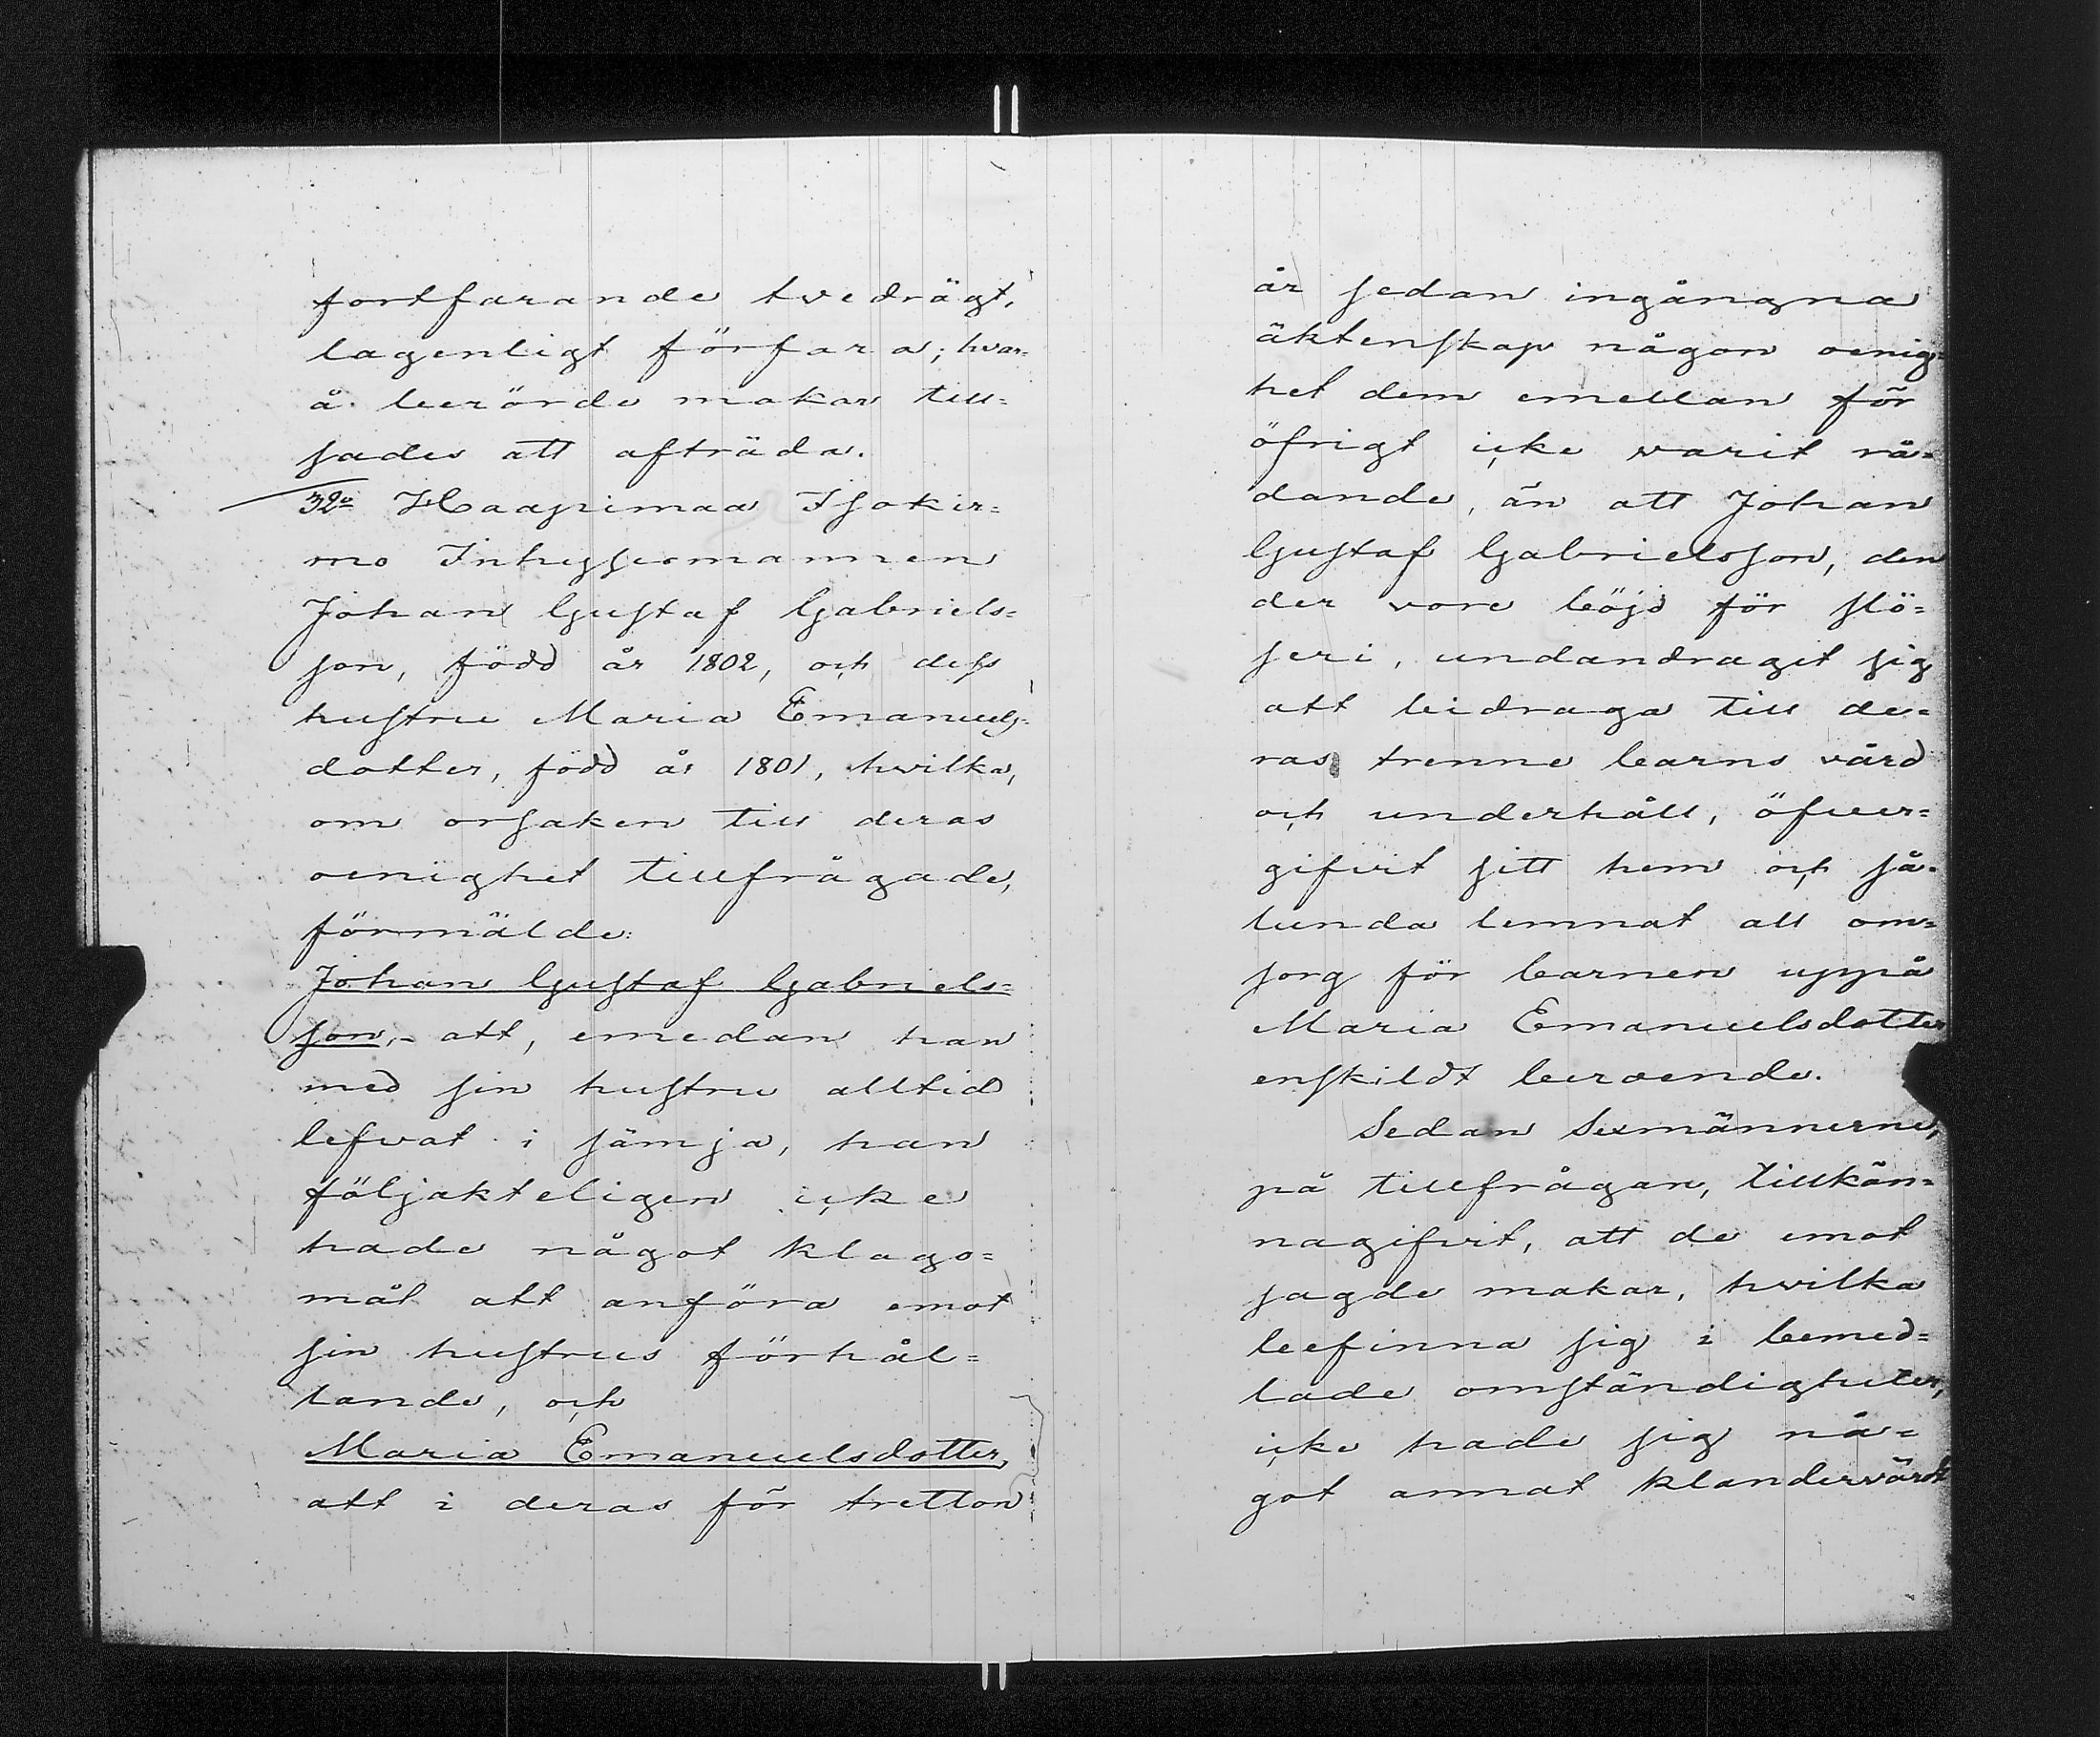 fortfarande tvedrägt,
lagenligt förfara; hvar=
å berörde makar till=
sades att afträda.
32o Haapimaa Isokir=
mo Inhysesmannen
Johan Gustaf Gabriels=
son, född år 1802, och dess
hustru Maria Emanuels=
dotter, född år 1801, hvilka,
om orsaken till deras
oenighet tillfrågade,
förmälde:
Johan Gustaf Gabriels=
son,- att, emedan han
med sin hustru alltid
lefvat i sämja, han
följakteligen icke
hade något klago=
mål att anföra emot
sin hustrus förhål=
lande, och
Maria Emanuelsdotter,
att i deras för tretton
år sedan ingångna
äktenskap någon oenig=
het dem emellan för
öfrigt icke varit rå=
dande, än att Johan
Gustaf Gabrielsson, den
der vore böjd för slö=
seri, undandragit sig
att bidraga till de=
ras trenne barns vård
och underhåll, öfver=
gifvit sitt hem och så=
lunda lemnat all om=
sorg för barnen uppå
Maria Emanuelsdotter
enskildt beroende.
Sedan Sexmännerne,
på tillfrågan, tillkän=
nagifvit, att de emot
sagde makar, hvilka
befinna sig i bemed=
lade omständigheter,
icke hade sig nå=
got annat klandervärdt